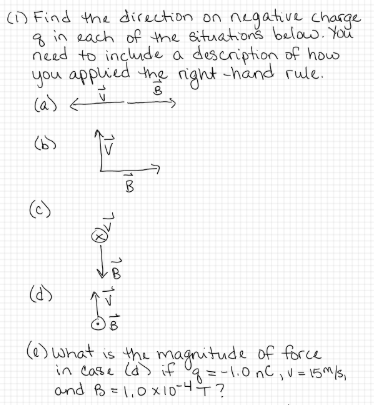 (1) Find the direction on negative charge
q in each of the situations below. You
need to include a description of how
you applied the right-hand rule.
(a) V⃗ B⃗
(b) V⃗
B⃗
(c) V⃗
B⃗
(d) V⃗
B⃗
(e) What is the magnitude of force
in case (d) if q = -1.0 nC, v = 15 m/s,
and B = 1.0 x 10⁻⁴ T?